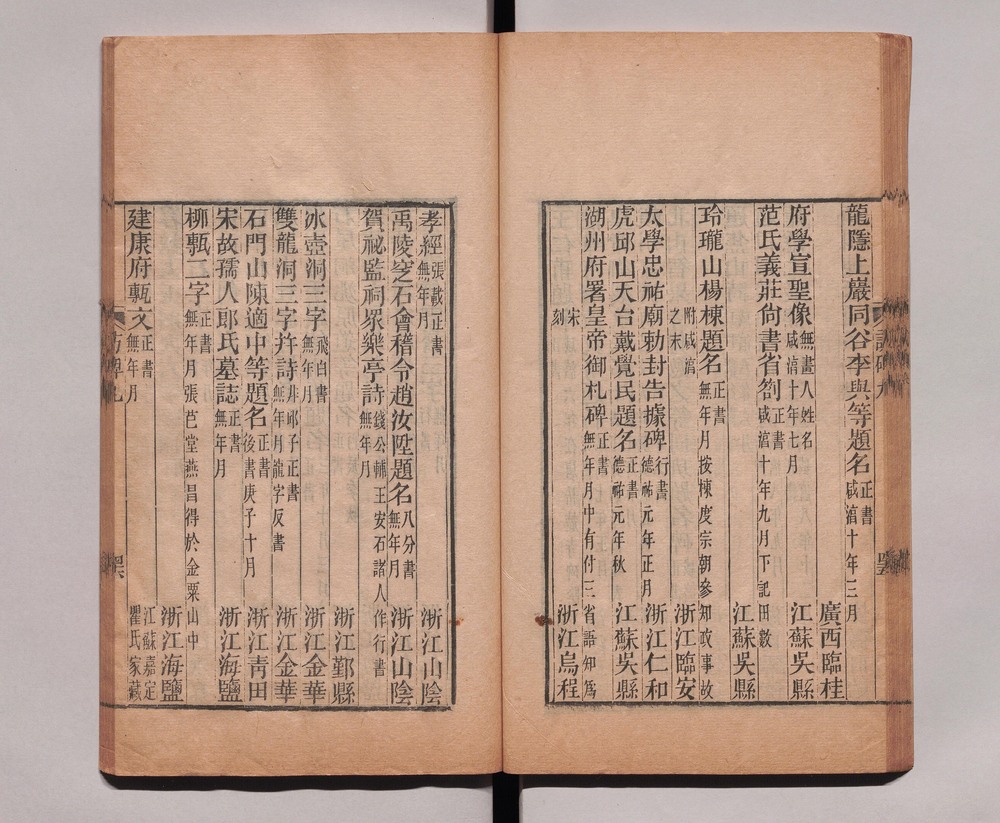 龍隱上巖同谷李與等題名 正書 咸淳十年三月
廣西臨桂
府學宣聖像 無畫人姓名 咸淳十年七月 江蘇吳縣
范氏義莊尙書省劄 正書 咸淳十年九月下記田數
江蘇吳縣
玲瓏山楊棟題名 正書 無年月按棟度宗朝參知政事故
附咸淳之末 浙江臨安
太學忠祐廟勅封告據碑 行書 德祐元年正月 浙江仁和
虎邱山天台戴覺民題名 正書 德祐元年秋 江蘇吳縣
湖州府署皇帝御札碑 正書 無年月中有付三省語知爲
宋刻 浙江烏程
孝經 張載正書 無年月 浙江山陰
禹陵窆石會稽令趙汝陞題名 八分書 無年月 浙江山陰
賀祕監祠眾樂亭詩 錢公輔王安石諸人作行書 無年月
浙江鄞縣
冰壺洞三字 飛白書 無年月 浙江金華
雙龍洞三字幷詩 非邱子正書 無年月龍字反書 浙江金華
石門山陳適中等題名 正書 後書庚子十月 浙江靑田
宋故孺人郎氏墓誌 正書 無年月 浙江海鹽
柳甎二字 正書 無年月張芭堂燕昌得於金粟山中
浙江海鹽
建康府甎文 正書 無年月 江蘇嘉定瞿氏家藏